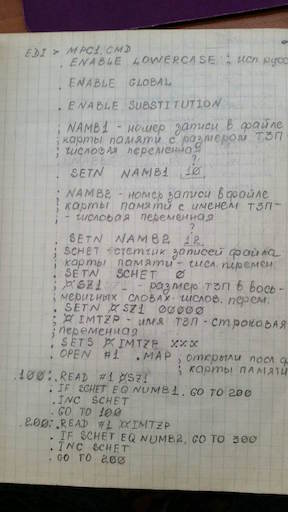 EDI > MPC1.CMD
. ENABLE LOWERCASE ; исп русс
. ENABLE GLOBAL
. ENABLE SUBSTITUTION
; NAMB1 - номер записи в файле
карты памяти с размером ТЗП
числовая переменная
?
. SETN NAMB1 10
; NAMB2 - номер записи в файле
карты памяти с именем ТЗП -
- числовая переменная
?
. SETN NAMB2 12
; SCHET - счетчик записей файла
карты памяти - числ. перемен.
. SETN SCHET 0
; ¤SZ1 - размер ТЗП в вось-
меричных словах. числов. перем.
. SETN ¤SZ1 00000
; ¤IMTZP - имя ТЗП - строковая
переменная
. SETS ¤IMTZP XXX
. OPEN #1 .MAP ; открыли посл ф
; карты памяти
.100: .READ #1 ¤SZ1
. IF SCHET EQ NUMB1. GO TO 200
. INC SCHET
. GO TO 100
.200: .READ #1 ¤IMTZP
. IF SCHET EQ NUMB2. GO TO 300
. INC SCHET
. GO TO 200